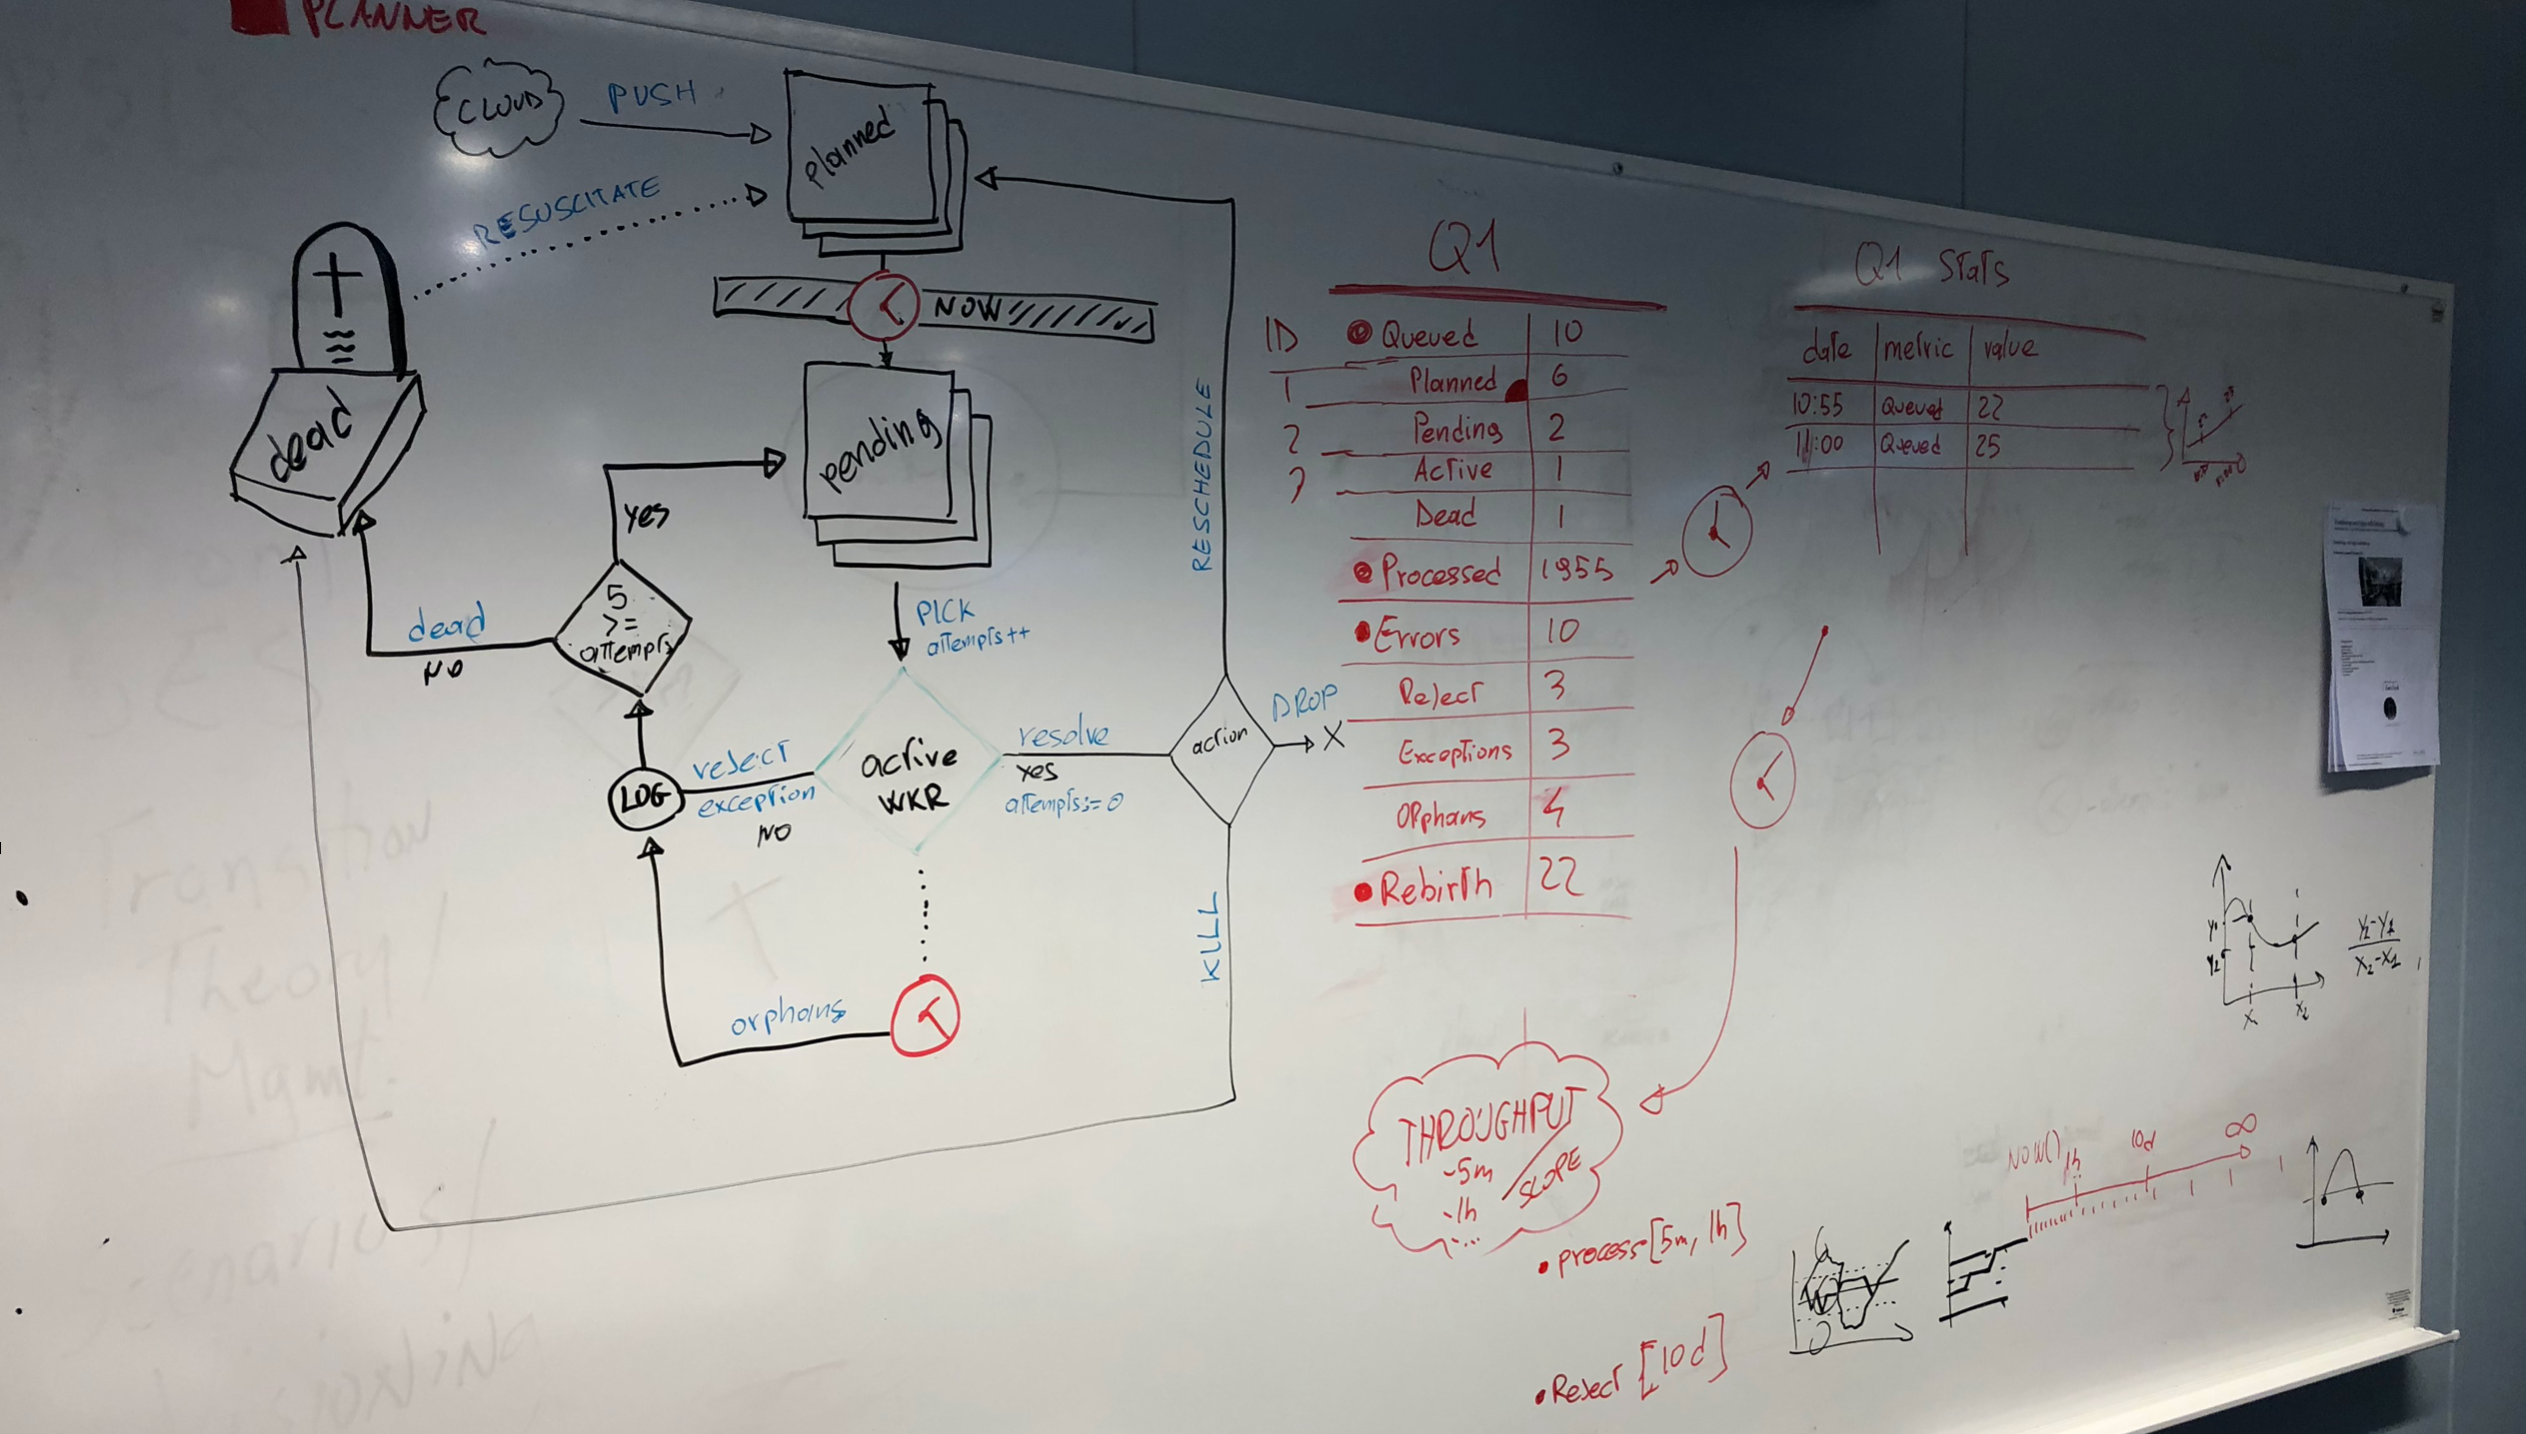 PLANNER
CLOUD
PUSH
Planned
RESUSCITATE
NOW
dead
Pending
yes
5
>=
attempts
dead
NO
PICK
attempts++
RESCHEDULE
LOG
reject
exception
NO
active
WKR
resolve
yes
attempts:=0
action
DROP
X
KILL
orphans
Q1
ID
1
2
Queued 10
Planned 6
Pending 2
Active 1
Dead 1
Processed 1955
Errors 10
Reject 3
Exceptions 3
Orphans 4
Rebirth 22
Q1 Stats
date metric value
10:55 Queued 22
11:00 Queued 25
THROUGHPUT
-5m
-1h
...
SLOPE
• process [5m, 1h]
• Reject [10d]
NOW() 1h 10d ∞
Y2
X1 X2
Y2-Y1
X2-X1
Transition
Theory/
Mgmt.